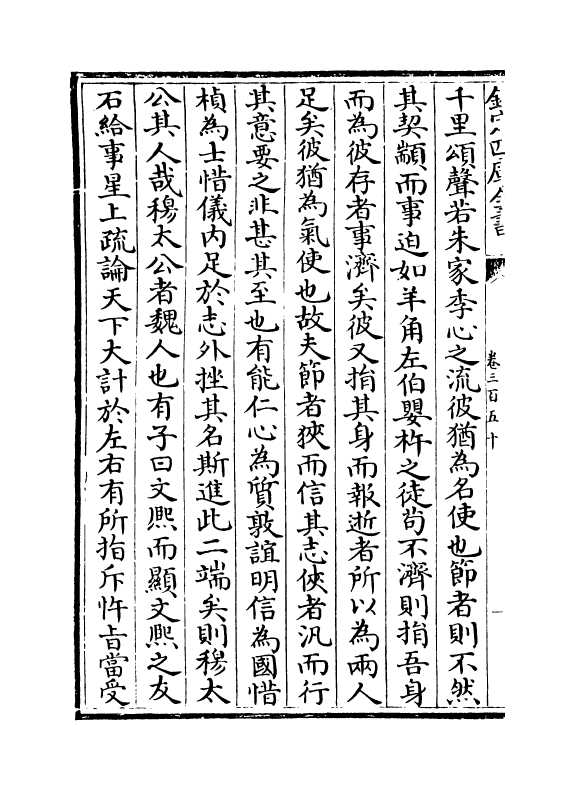 欽定四庫全書
卷三百五十
千里頌聲若朱家季心之流彼猶為名使也節者則不然
其契顓而事迫如羊角左伯嬰杵之徒苟不濟則捐吾身
而為彼存者事濟矣彼又捐其身而報逝者所以為兩人
足矣彼猶為氣使也故夫節者狹而信其志俠者汎而行
其意要之非甚其至也有能仁心為質敦誼明信為國惜
楨為士惜儀内足於志外挫其名斯進此二端矣則穆太
公其人哉穆太公者魏人也有子曰文熈而顯文熈之友
石給事星上疏論天下大計於左右有所指斥忤㫖當受